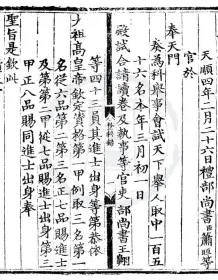 天順四年二月二十六日禮部尚書臣蕭晅等
官於
奉天門
奏為科舉事會試天下舉人取中一百五
十六名本年三月初一日
殿試合請讀卷及執事等官吏部尚書王翱
等四十三員其進士出身等第恭依
太祖高皇帝欽定資格第一甲例取三名第一
名從六品第二第三名正七品賜進士
及第第二甲從七品賜進士出身第三
甲正八品賜同進士出身奉
聖旨是欽此